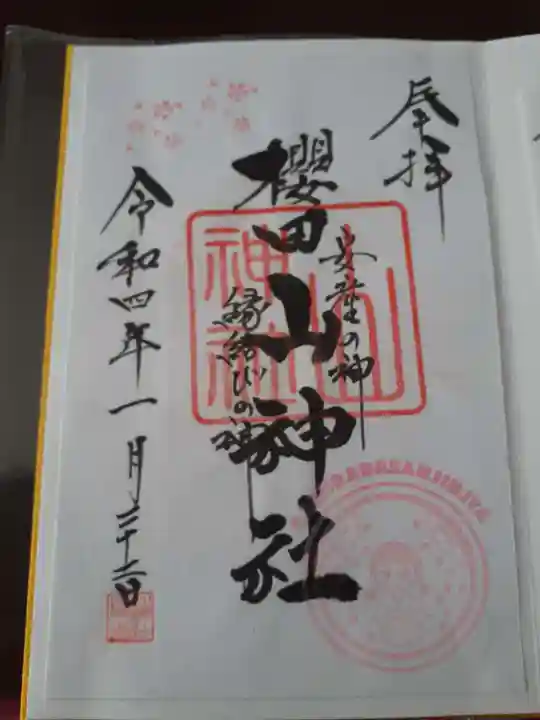 奉拝
安産の神
櫻田山神社
縁結びの神
令和四年一月二十二日